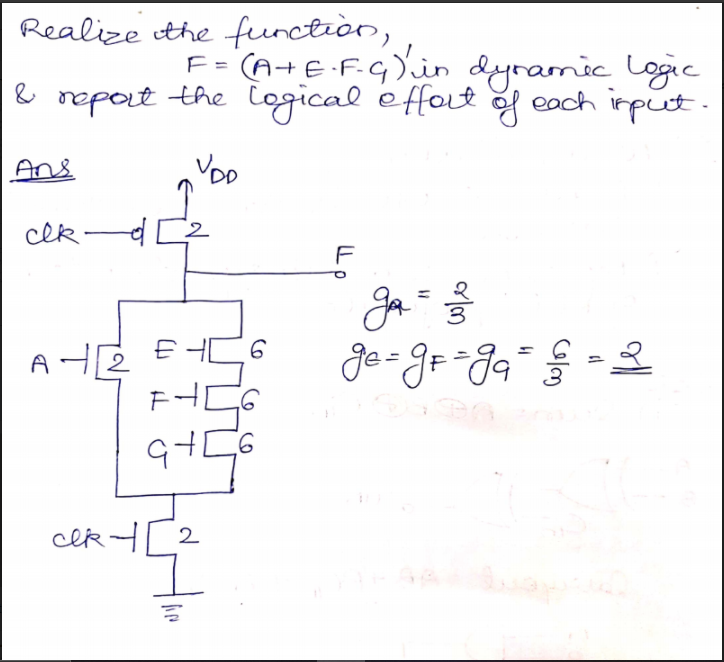 Realize the function,
F = (A+E.F.G)' in dynamic logic
& report the logical effort of each input.
Ans
VDD
clk 2
F
gA = 2/3
A 2 E 6
gE = gF = gG = 6/3 = 2
F 6
G 6
clk 2